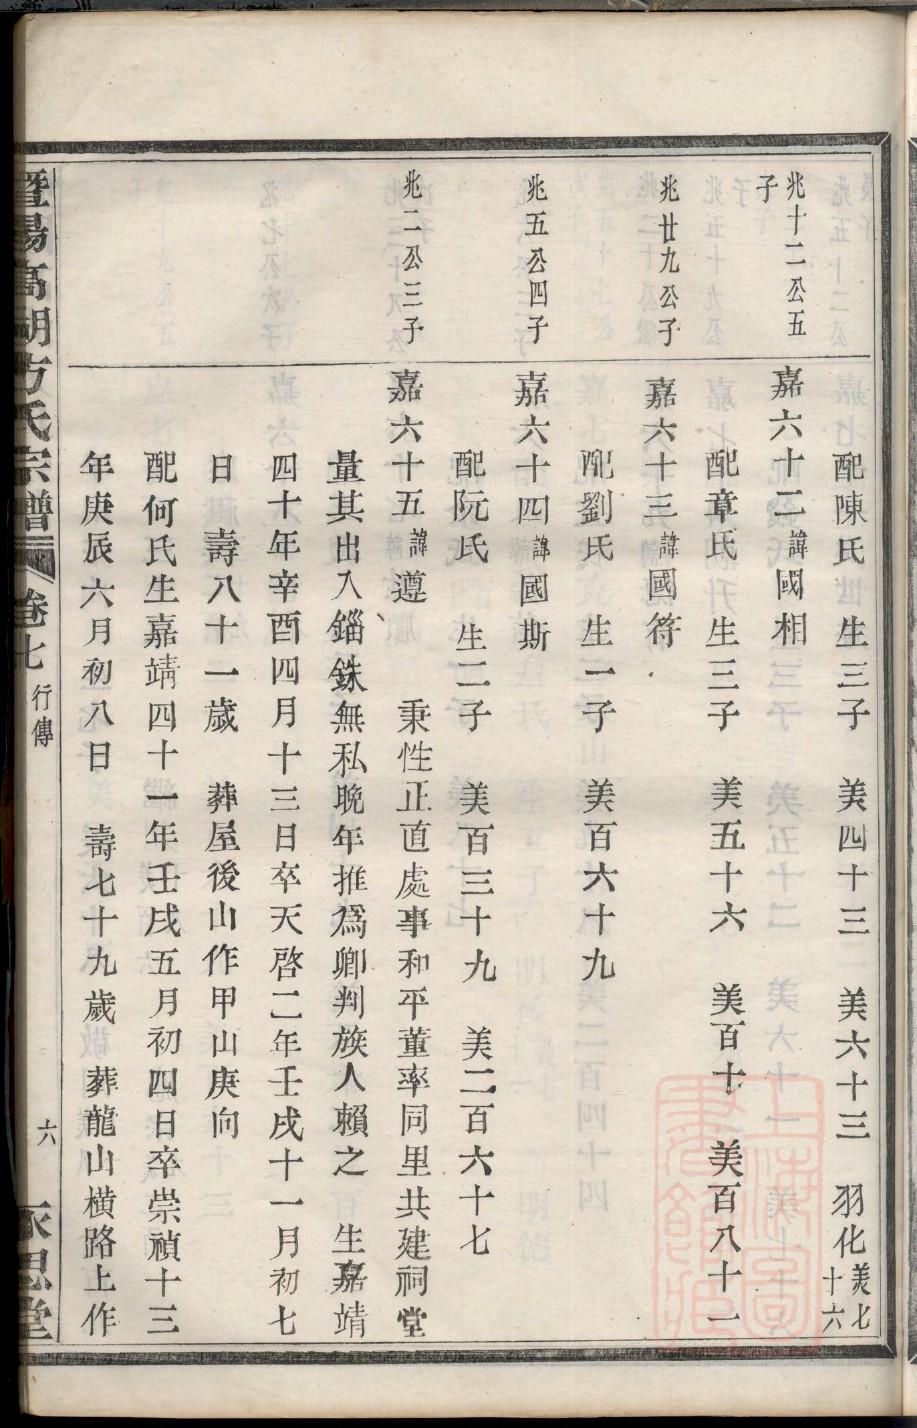 配陳氏 生三子 美四十三 美六十三 羽化美七十六
兆十二公五子
嘉六十二諱國相
配章氏 生三子 美五十六 美百十 美百八十一
兆廿九公子
嘉六十三諱國符
配劉氏 生一子 美百六十九
兆五公四子
嘉六十四諱國斯
配阮氏 生二子 美百三十九 美二百六十七
兆二公三子
嘉六十五諱遵 秉性正直處事和平董率同里共建祠堂
量其出入錙銖無私晚年推爲卿判族人賴之 生嘉靖
四十年辛酉四月十三日卒天啓二年壬戌十一月初七
日 壽八十一歲 葬屋後山作甲山庚向
配何氏生嘉靖四十一年壬戌五月初四日卒崇禎十三
年庚辰六月初八日 壽七十九歲 葬龍山橫路上作
暨陽高湖方氏宗譜 卷七 行傳 六 永思堂